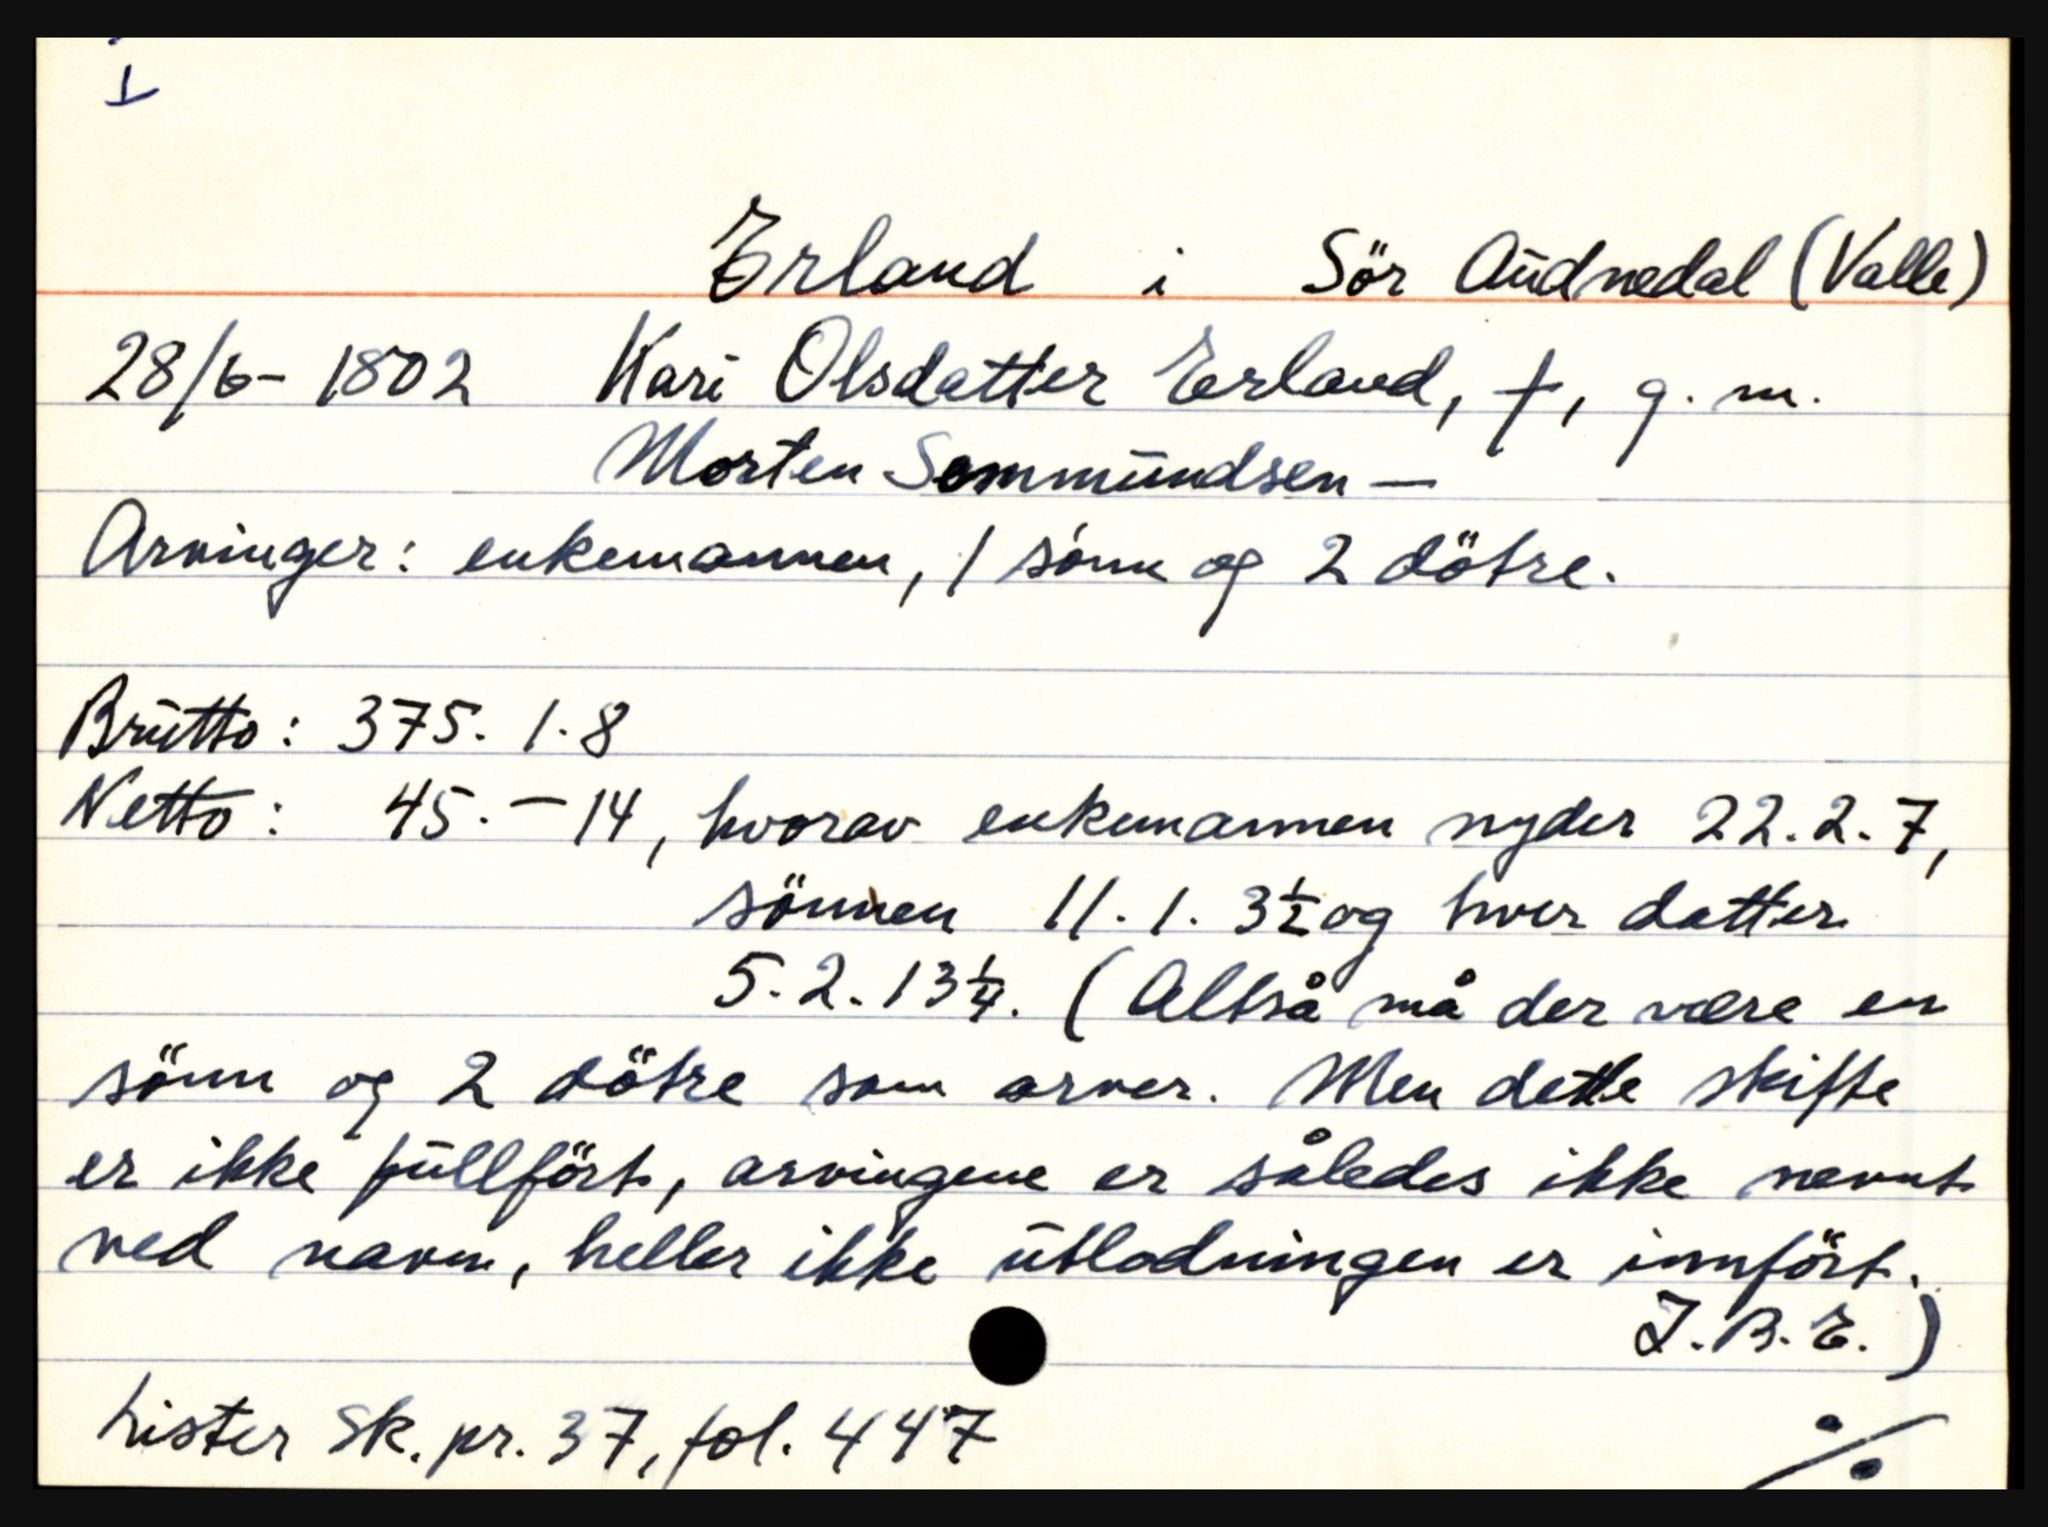 Erland i Sör Audnedal (Valle)
28/6- 1802 Kari Olsdatter Erland, †, g. m.
Morten Sommundsen —
Arvinger: enkemannen, 1 sönn og 2 dötre.
Brutto: 375. 1. 8
Netto: 45. — 14, hvorav enkemannen nyder 22. 2. 7,
sönnen 11. 1. 3½ og hver datter
5. 2. 13¼. (Altså må der være en
sönn og 2 dötre som arver. Men dette skifte
er ikke fullfört, arvingene er således ikke nevnt
ved navn, heller ikke utlodningen er innfört.
J. B. E. )
Lister Sk. pr. 37, fol. 447
%